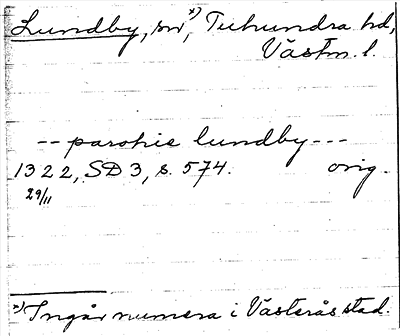 Lundby, sn x), Tuhundra hd,
Västm. l.
-- parohie lundby ---
1322, SD 3, s. 574. orig.
29/11
x) Ingår numera i Västerås stad.